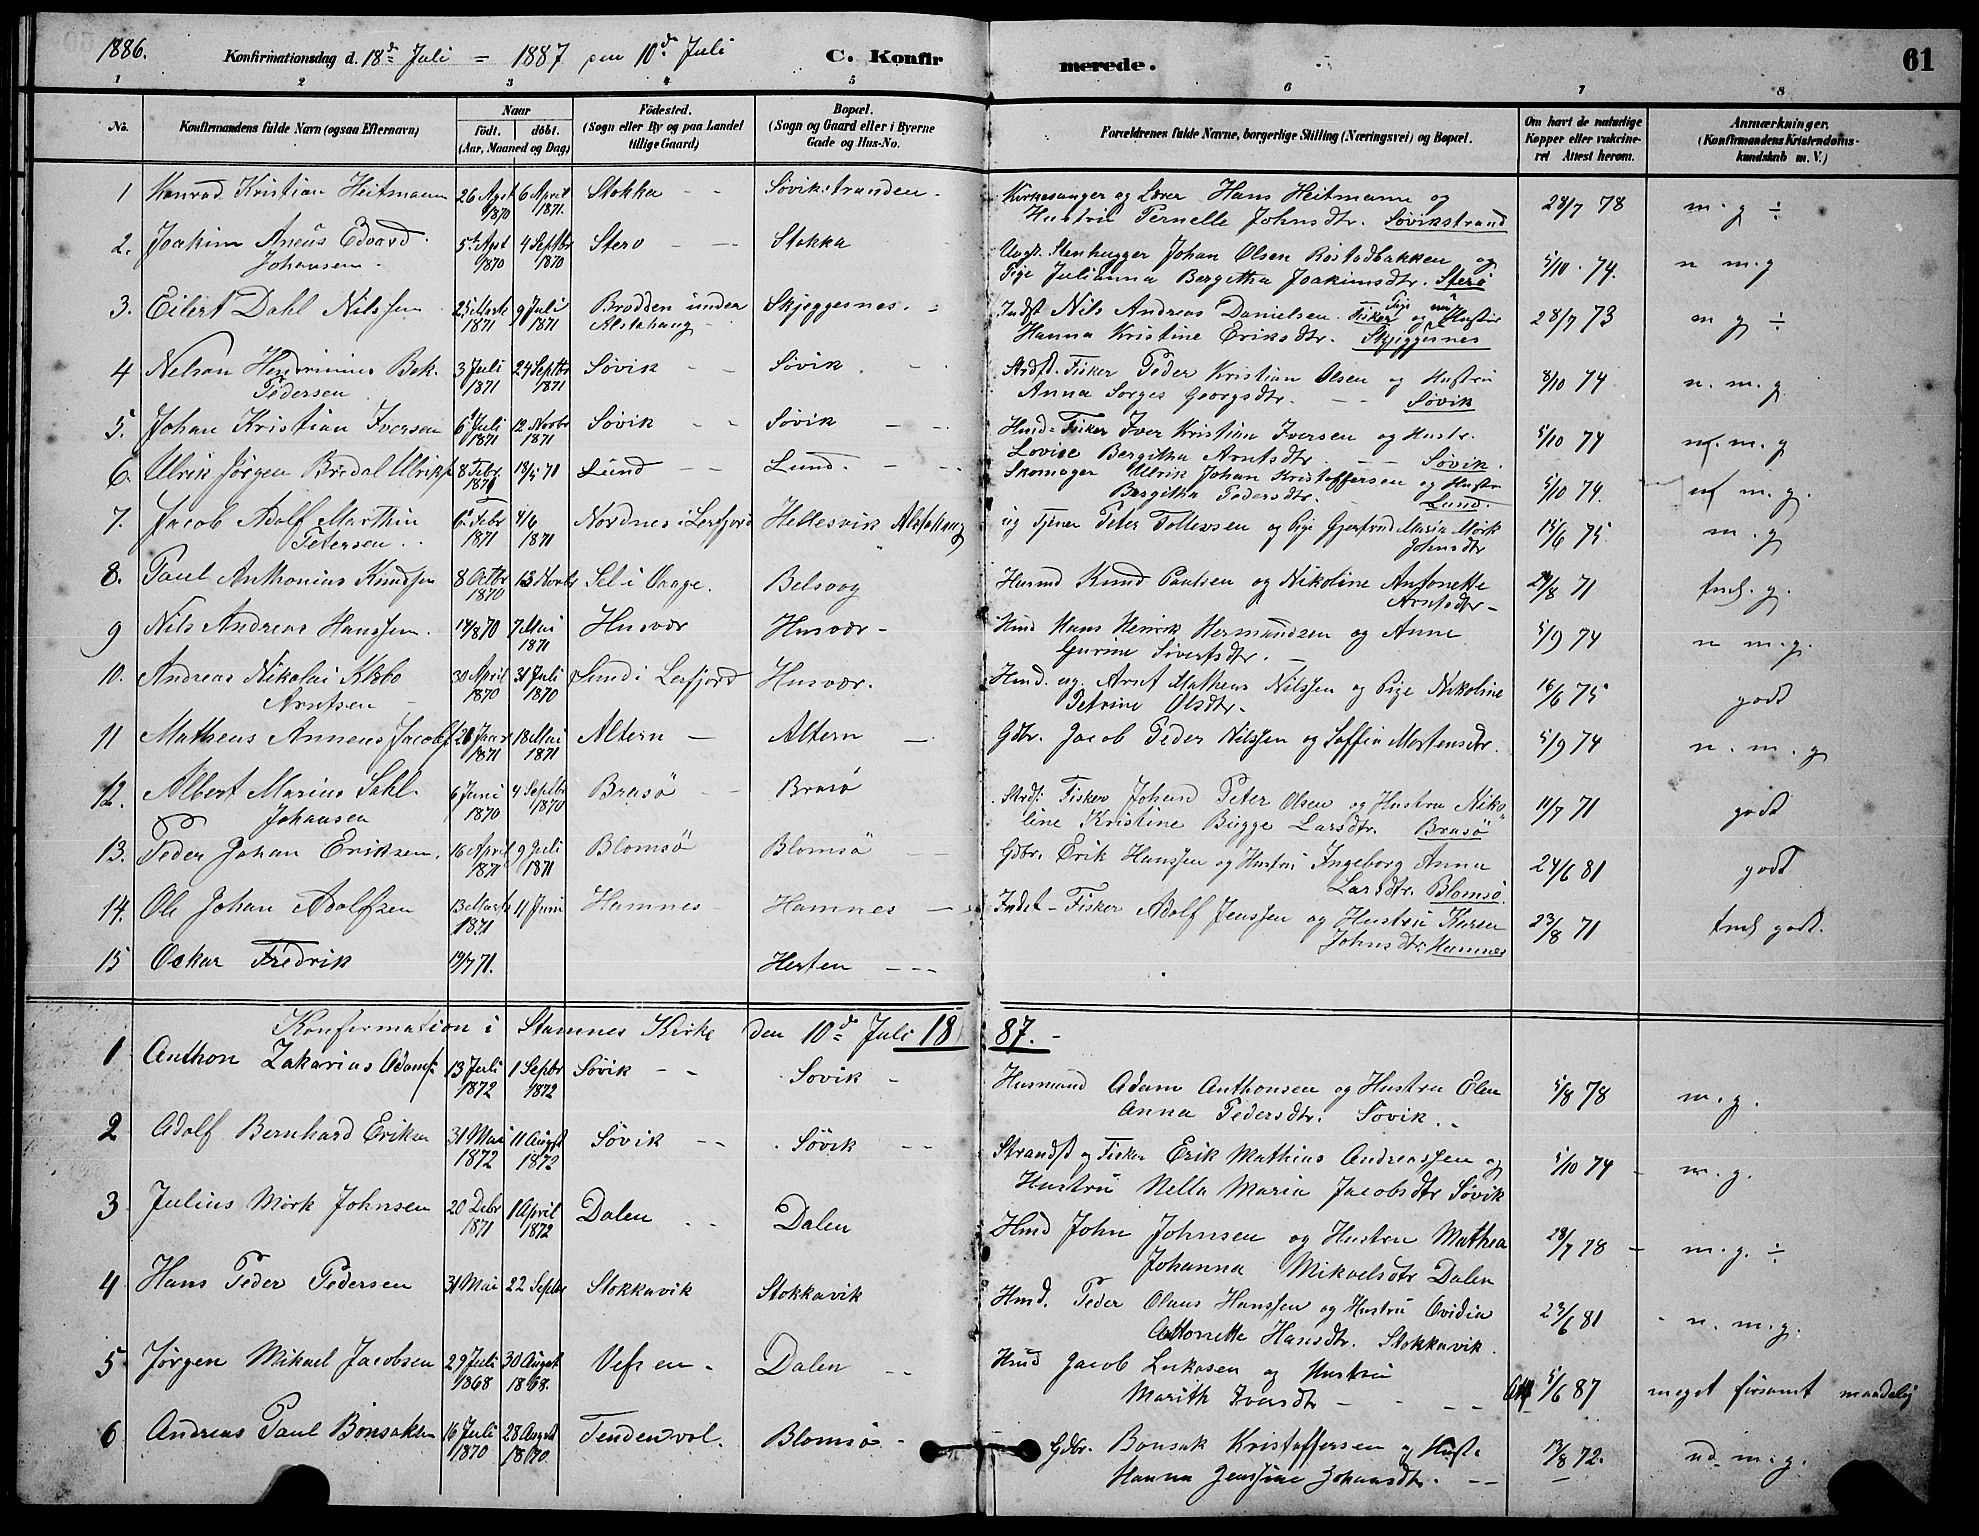 1886. Konfirmationsdag d. 18de Juli = 1887 den 10de Juli C. Konfirmerede. 61
1 2 3 4 5 6 7 8
No. Konfirmandens fulde Navn (ogsaa Efternavn) Naar födt. döbt. (Aar, Maaned og Dag) Födested. (Sogn eller By og paa Landet tillige Gaard) Bopæl. (Sogn og Gaard eller i Byerne Gade og Hus-No. Forældrenes fulde Navne, borgerlige Stilling (Næringsvei) og Bopæl. Om havt de naturlige Kopper eller vakcineret Attest herom. Anmærkninger, (Konfirmandens Kristendomskundskab m. V.)
1 Konrad Kristian Heitmann 26 Agst 1870 6 April 1871. Stokka Søvikstranden Kirkesanger og Lærer Hans Heitmann og 28/7 78 m. g ÷
Hustru Pernelle Johnsdtr. Søvikstrand
2. Joakim Aneus Edvard 5te Agst 1870 4 Septbr 1870 Sterø Stokka Ungk. Stenhugger Johan Olsen Røstadbakken og 5/10 74. n m. g
Johansen Pige Julianna Bergitha Joakimsdtr. Sterø
3. Eilert Dahl Nilssen 25 Marts 1871 9 Juli 1871 Brødden under Alstahaug Skjeggesnes. Indst Nils Andreas Danielsen Fisker og Pige nu Hustru 28/7 73 m g ÷
Hanna Kristine Eriksdtr. Skjeggesnes
4 Nelson Henrinius Bek. 3 Juli 1871 24 Septbr 1871 Søvik Søvik Strdst. Fisker Peder Kristian Olsen og Hustru 8/10 74 n. m. g
Pedersen Anna Sorges Georgsdtr. Søvik
5. Johan Kristian Iversen 6 Juli 1871 12 Novbr 1871 Søvik Søvik Hmd. Fisker Iver Kristian Iversen og Hustr. 5/10 74 m. g
Lovise Bergitha Arntsdtr Søvik.
6. Ulrik Jörgen Bredal Ulriks. 8 Febr. 1871 18/5 71 Lund Lund. Skomager Ulrik Johan Kristoffersen og Hustru 5/10 74. m. g.
Bergitha Pedersdtr. Lund.
7. Jacob Adolf Marthin 6 Febr 1871 4/6 1871 Nordnes i Leirfjord Hellesvik Alstahaug ug Tjener Peter Tollevsen og Pige Gjertrud Maria Mørk 15/6 75 m. g
Petersen Johnsdtr
8. Paul Anthonius Knudsen 8 Octbr 1870 13 Novbr Sel i Vaage. Belsvog Husmd Knud Paulsen og Nikoline Antonette 29/8 71 tmd. g.
Arntsdtr
9 Nils Andreas Hanssen 14/8 70 7 Mai 1871 Husvær Husvær Hmd Hans Henrik Hermundsen og Anne 5/9 74 n m. g.
Gurine Sivertsdtr.
10. Andreas Nikolai Klæbo 30 April 1870 31 Juli 1870 Sund i Leirfjord Husvær. Hmd. ug. Arnt Matheus Nilssen og Pige Nikoline 16/6 75 godt
Arntsen Petrine Olsdtr.
11 Matheus Anneus Jacobs. 28 Janr 1871 18 Mai 1871 Altern Altern Gdbr. Jacob Peder Nilssen og Soffia Mortensdtr. 5/9 74 n. m. g
12. Albert Marius Sahl 6 Juni 1870 4 Septbr 1870 Brasö Brasö Strdst: Fisker Johan Peter Olsen og Hustru Niko- 11/7 71 godt
Johansen line Kristine Bugge Larsdtr. Brasö
13. Peder Johan Eriksen. 16 April 1871 9 Juli 1871 Blomsö Blomsö Gdbr. Erik Hanssen og Hustru Ingeborg Anna 24/6 81 godt
Larsdtr. Blomsö.
14. Ole Johan Adolfsen 13 Marts 1871 11 Juni Hamnes Hamnes Indst. Fisker Adolf Jenssen og Hustru Karen 23/8 71 tmd godt.
Johnsdtr. Hamnes
15 Oskar Fredrik 19/7 71. Herten
Konfirmation i Stamnes Kirke den 10de Juli 1887.
1 Anthon Zakarias Adams. 13 Juli 1872 1 Septbr 1872 Søvik Søvik Husmand Adam Anthonsen og Hustru Elen 5/8 78 m. g.
Anna Pedersdtr. Søvik.
2 Adolf Bernhard Eriksen 31 Mai 1872 11 Augst 1872 Søvik Søvik Strandst og Fisker Erik Mathias Andreassen og 5/10 74 m. g.
Hustru Nella Maria Jacobsdtr Søvik
3 Julius Mörk Johnsen 20 Debr 1871 1 April 1872 Dalen Dalen Hmd John Johnsen og Hustru Mathea 28/7 78 m. g. ÷
Johanna Mikaelsdtr Dalen
4 Hans Peder Pedersen 31 Mai 22 Septbr Stokkavik Stokkavik Hmd. Peder Olaus Hanssen og Hustru Ovidia 23/6 81 n. m. g.
Antonette Hansdtr. Stokkavik.
5 Jørgen Mikael Jacobsen 29 Juli 1868 30 Augst 1868. Vefsen Dalen Hmd Jacob Lukasen og Hustru
Marith Iversdtr Att 5/6 87 meget forsømt maadelig
6 Andreas Paul Bonsaksen 16 Juli 1870 28 Augst 1870. Tendervol. Blomsø Gdbr. Bonsak Kristoffersen og Hust. 13/8 72. ud. m. g.
Hanna Jenssine Johansdtr.